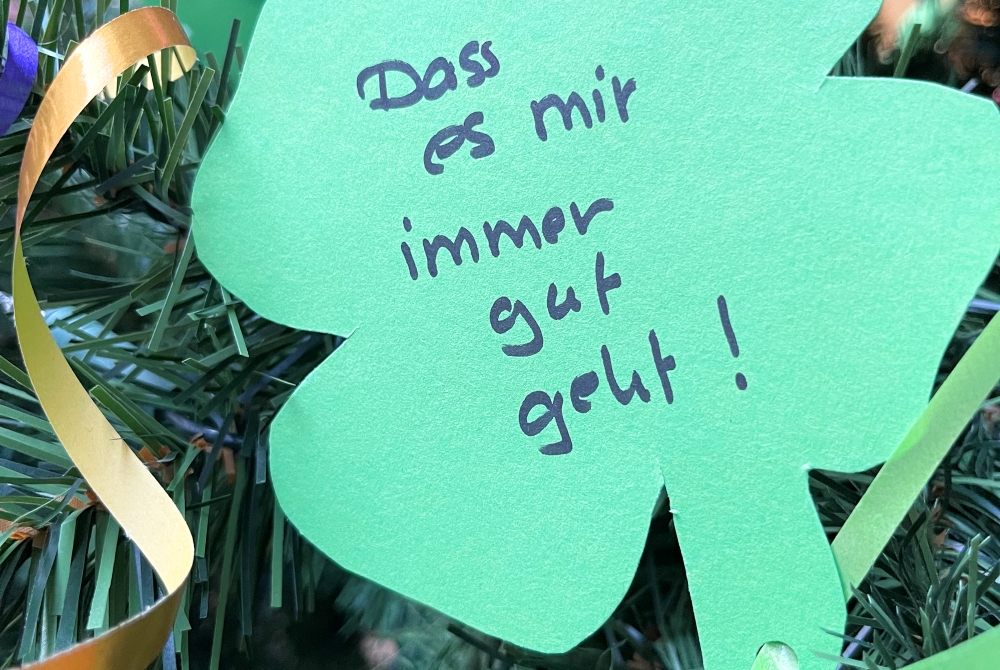 Dass
es mir
immer
gut
geht!